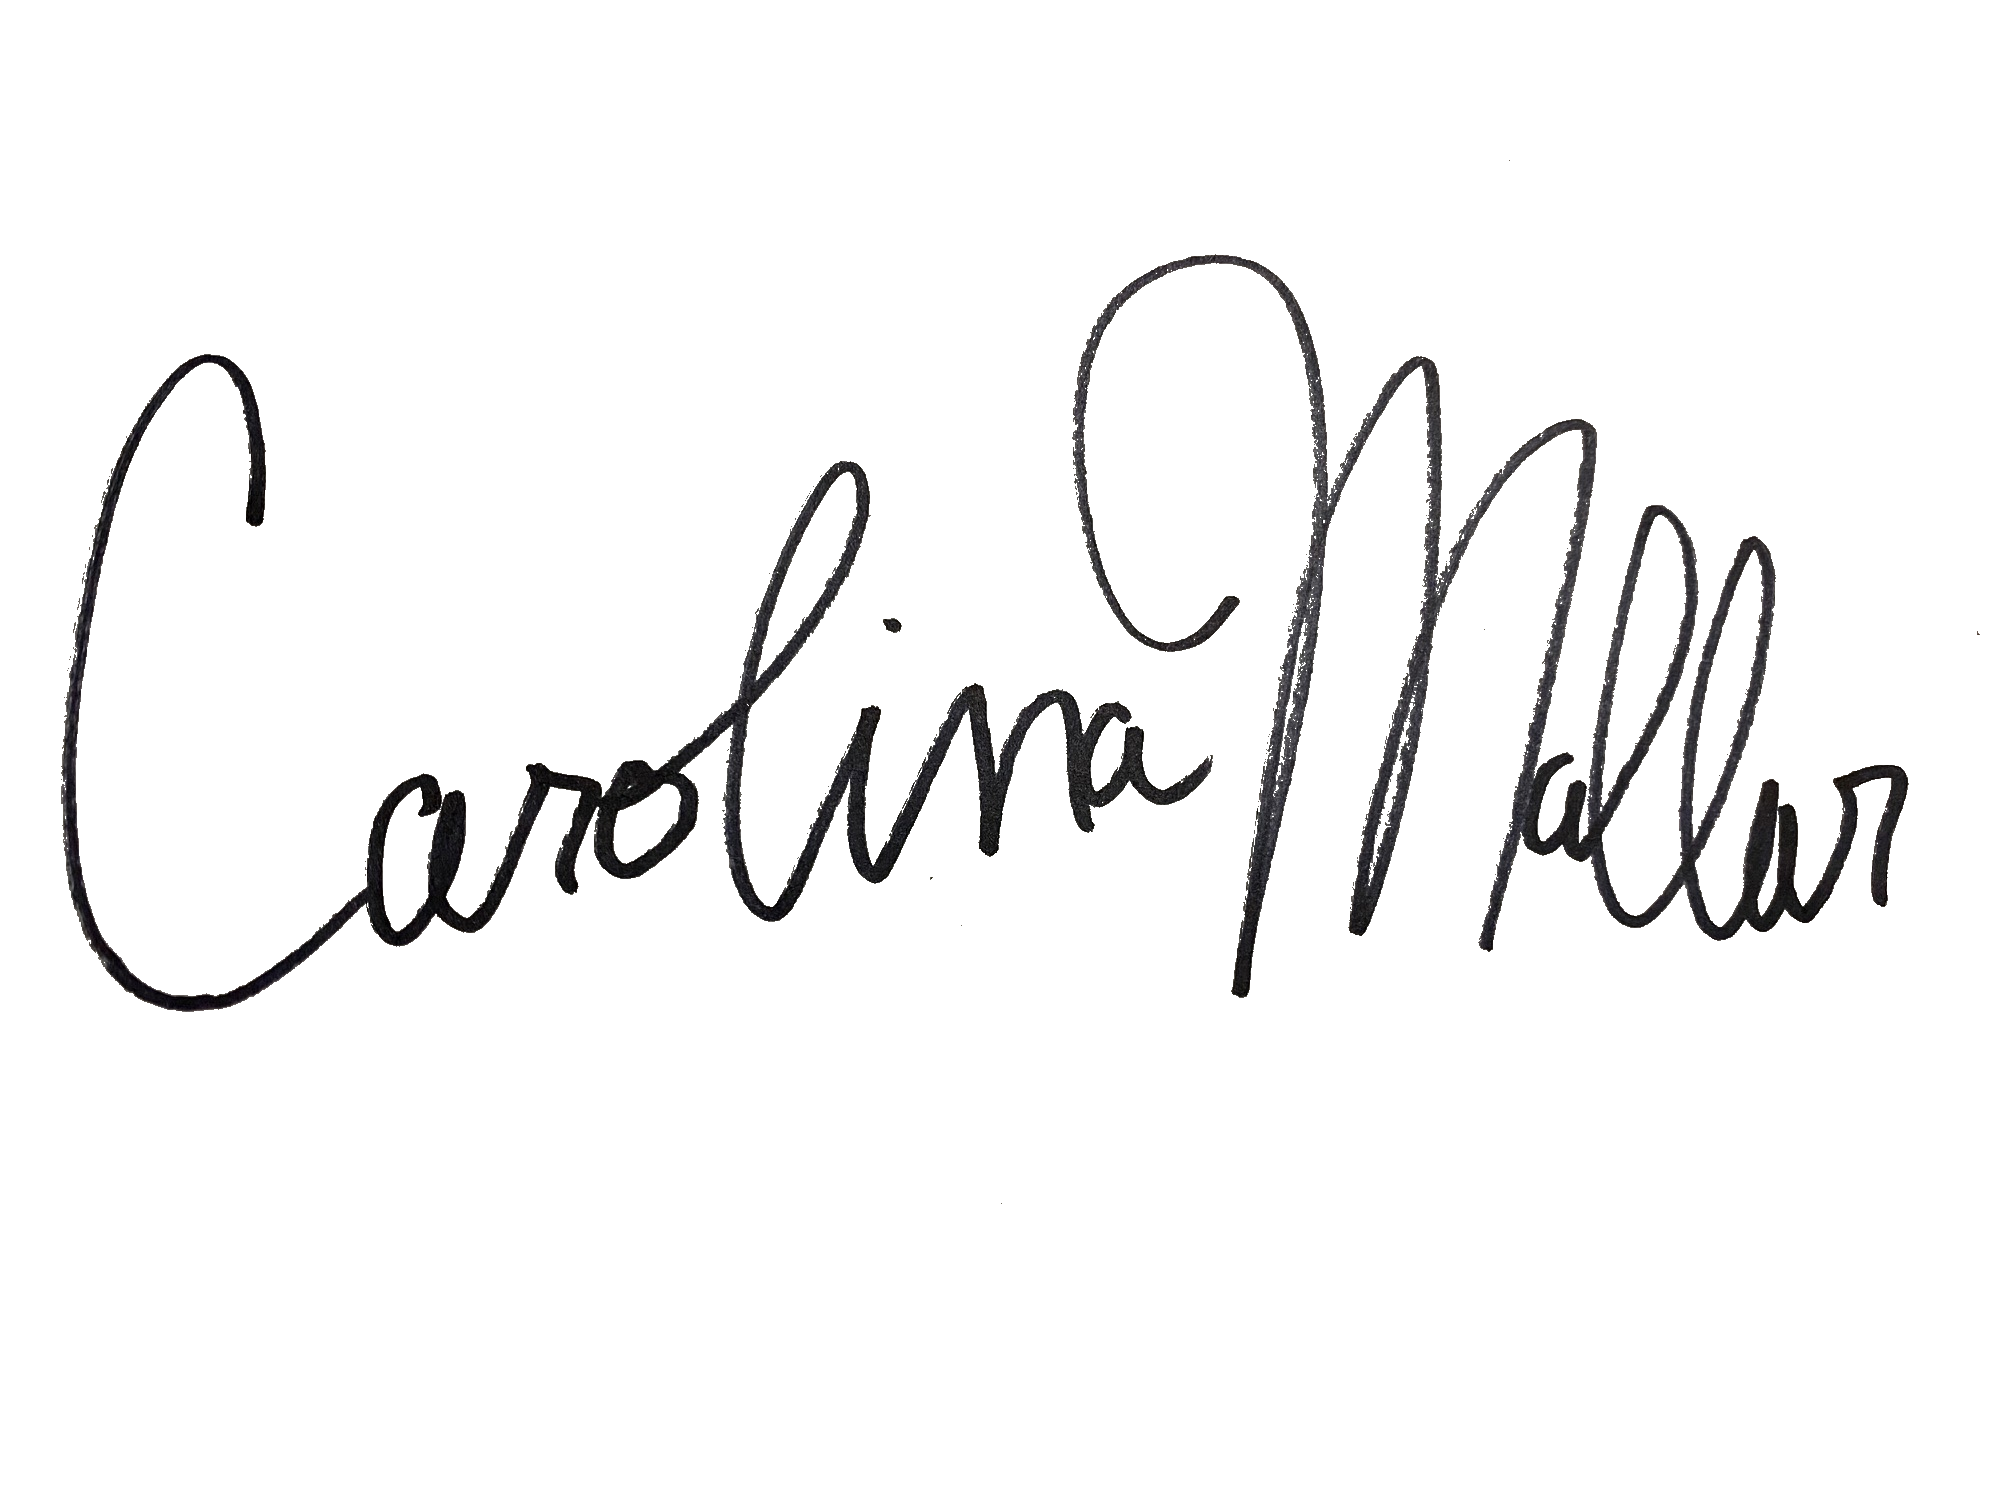 Carolina Mallar